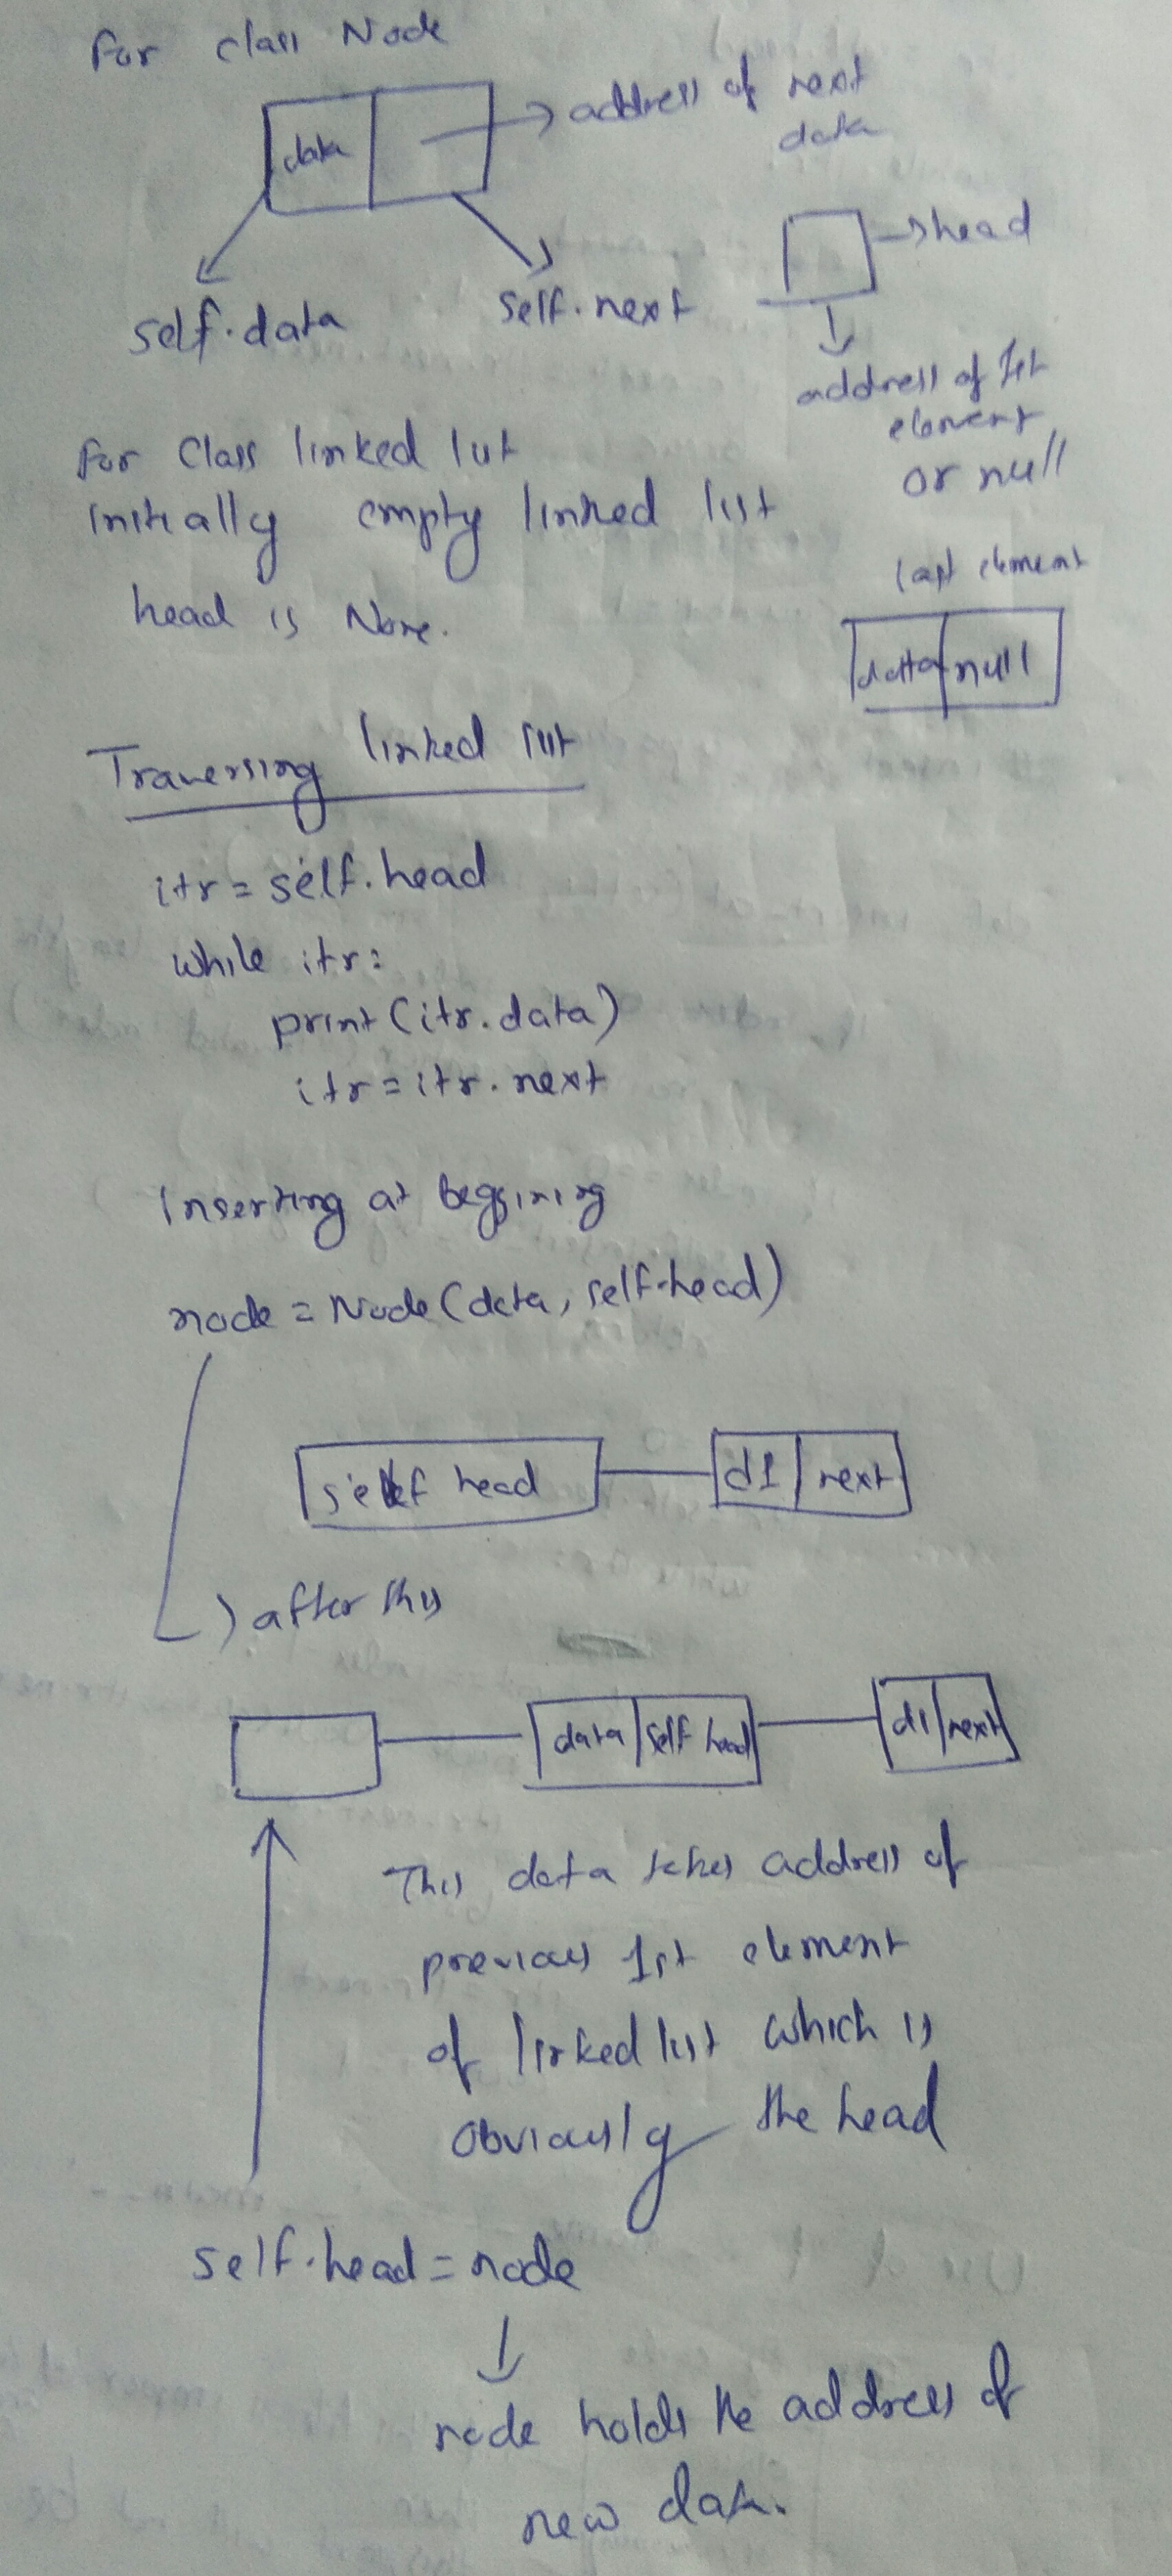 For class Node
data
address of next
data
head
self.data
self.next
address of 1st
element
or null
For Class linked list
initially empty linked list
head is None.
last element
data null
Traversing linked list
itr = self.head
while itr:
print(itr.data)
itr = itr.next
Inserting at beggining
node = Node(data, self.head)
self head
d1 next
after this
data self head
d1 next
This data takes address of
previous 1st element
of linked list which is
obviously the head
self.head = node
node holds the address of
new data.